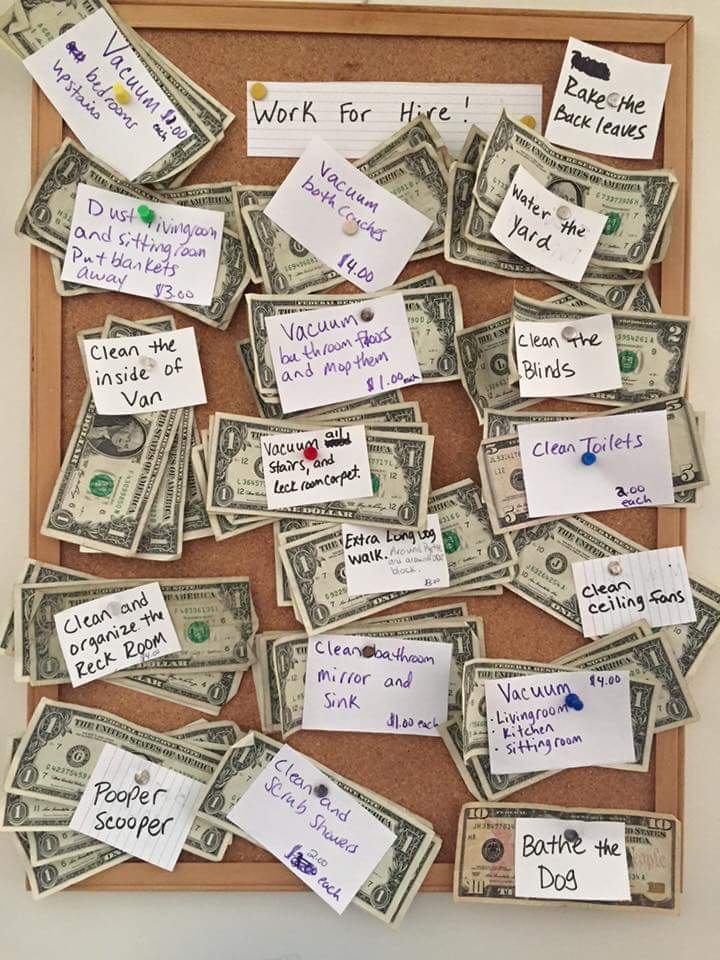 Work For Hire!
Vacuum $2.00
bedrooms each
upstairs
Rake the
Back leaves
Vacuum
both couches
$4.00
Water the
Yard
Dust livingroom
and sitting room
Put blankets
away $3.00
Vacuum
bathroom floors
and mop them
$1.00 each
Clean the
Blinds
Clean the
inside of
Van
Vacuum
Stairs, and
Reck room carpet.
Clean Toilets
2.00
each
Extra Long Dog
Walk. Around
block.
Clean
ceiling fans
Clean and
organize the
Reck Room
Clean bathroom
mirror and
Sink
$1.00 each
Vacuum $4.00
• Livingroom
• Kitchen
• Sitting room
Pooper
Scooper
Clean and
Scrub Showers
2.00
each
Bathe the
Dog